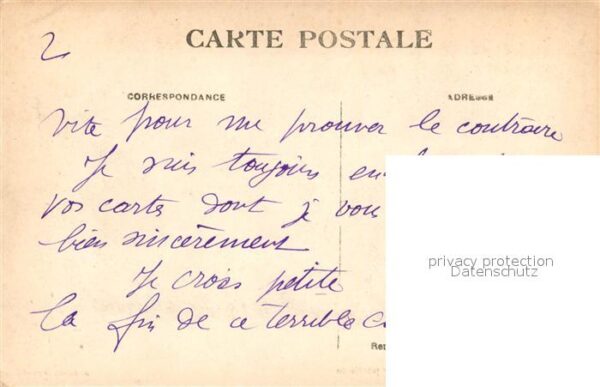 2
CARTE POSTALE
CORRESPONDANCE
ADRESSE
vite pour me prouver le contraire
Je suis toujours en
vos cartes dont je vou
bien sincèrement
Je crois petite
La fin de ce terrible c
privacy protection
Datenschutz
Re